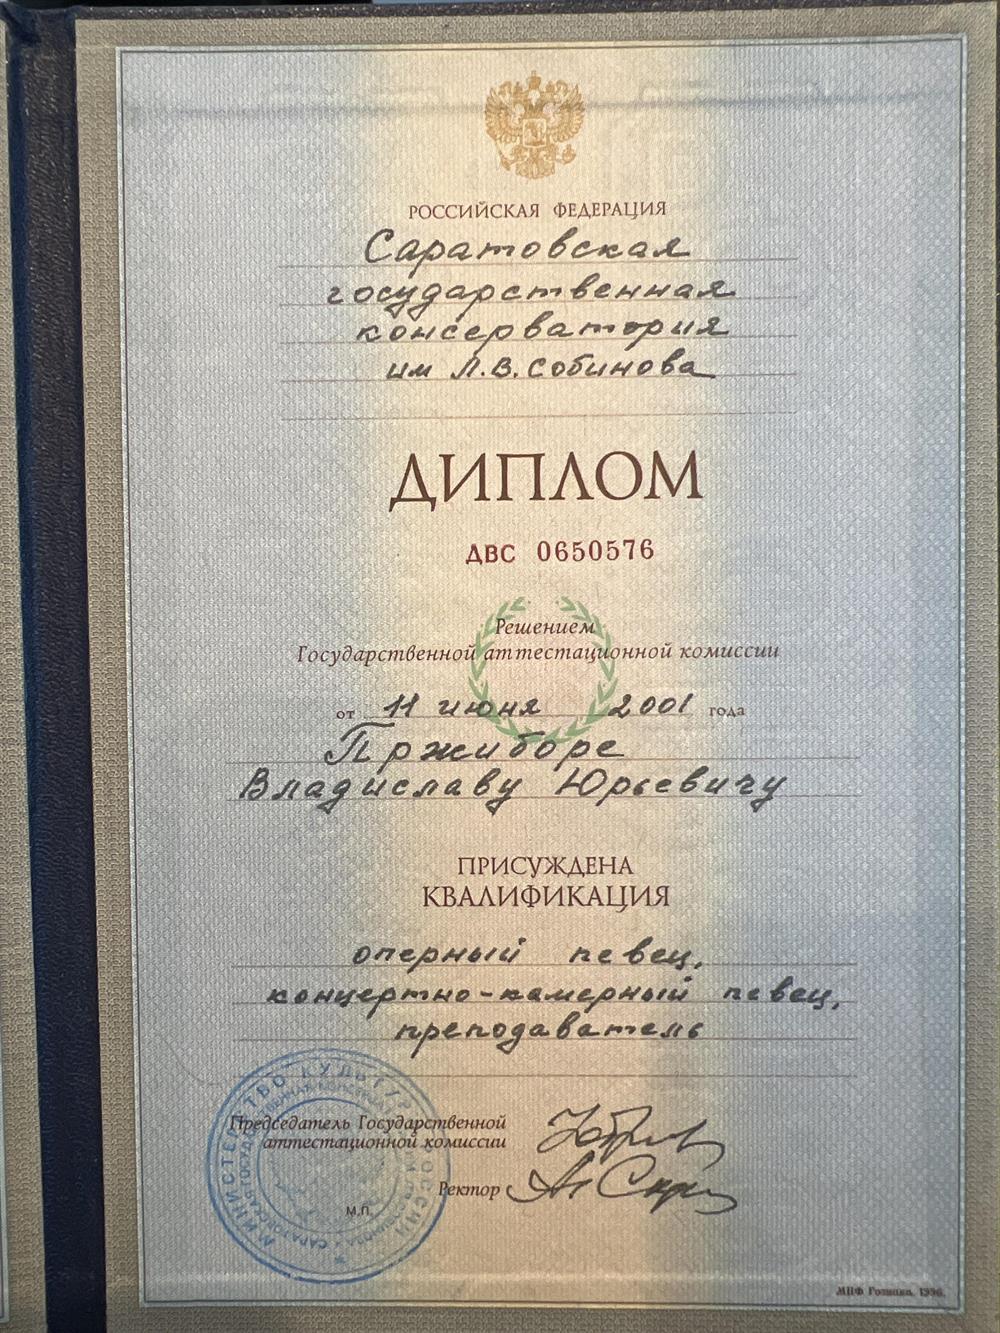 РОССИЙСКАЯ ФЕДЕРАЦИЯ
Саратовская
государственная
консерватория
им Л.В. Собинова
ДИПЛОМ
ДВС 0650576
Решением
Государственной аттестационной комиссии
от 11 июня 2001 года
Пржиборе
Владиславу Юрьевичу
ПРИСУЖДЕНА
КВАЛИФИКАЦИЯ
оперный певец,
концертно-камерный певец,
преподаватель
МИНИСТЕРСТВО КУЛЬТУРЫ РОССИИ
Председатель Государственной
аттестационной комиссии
Ректор
М.П.
МПФ Гознака. 1996.